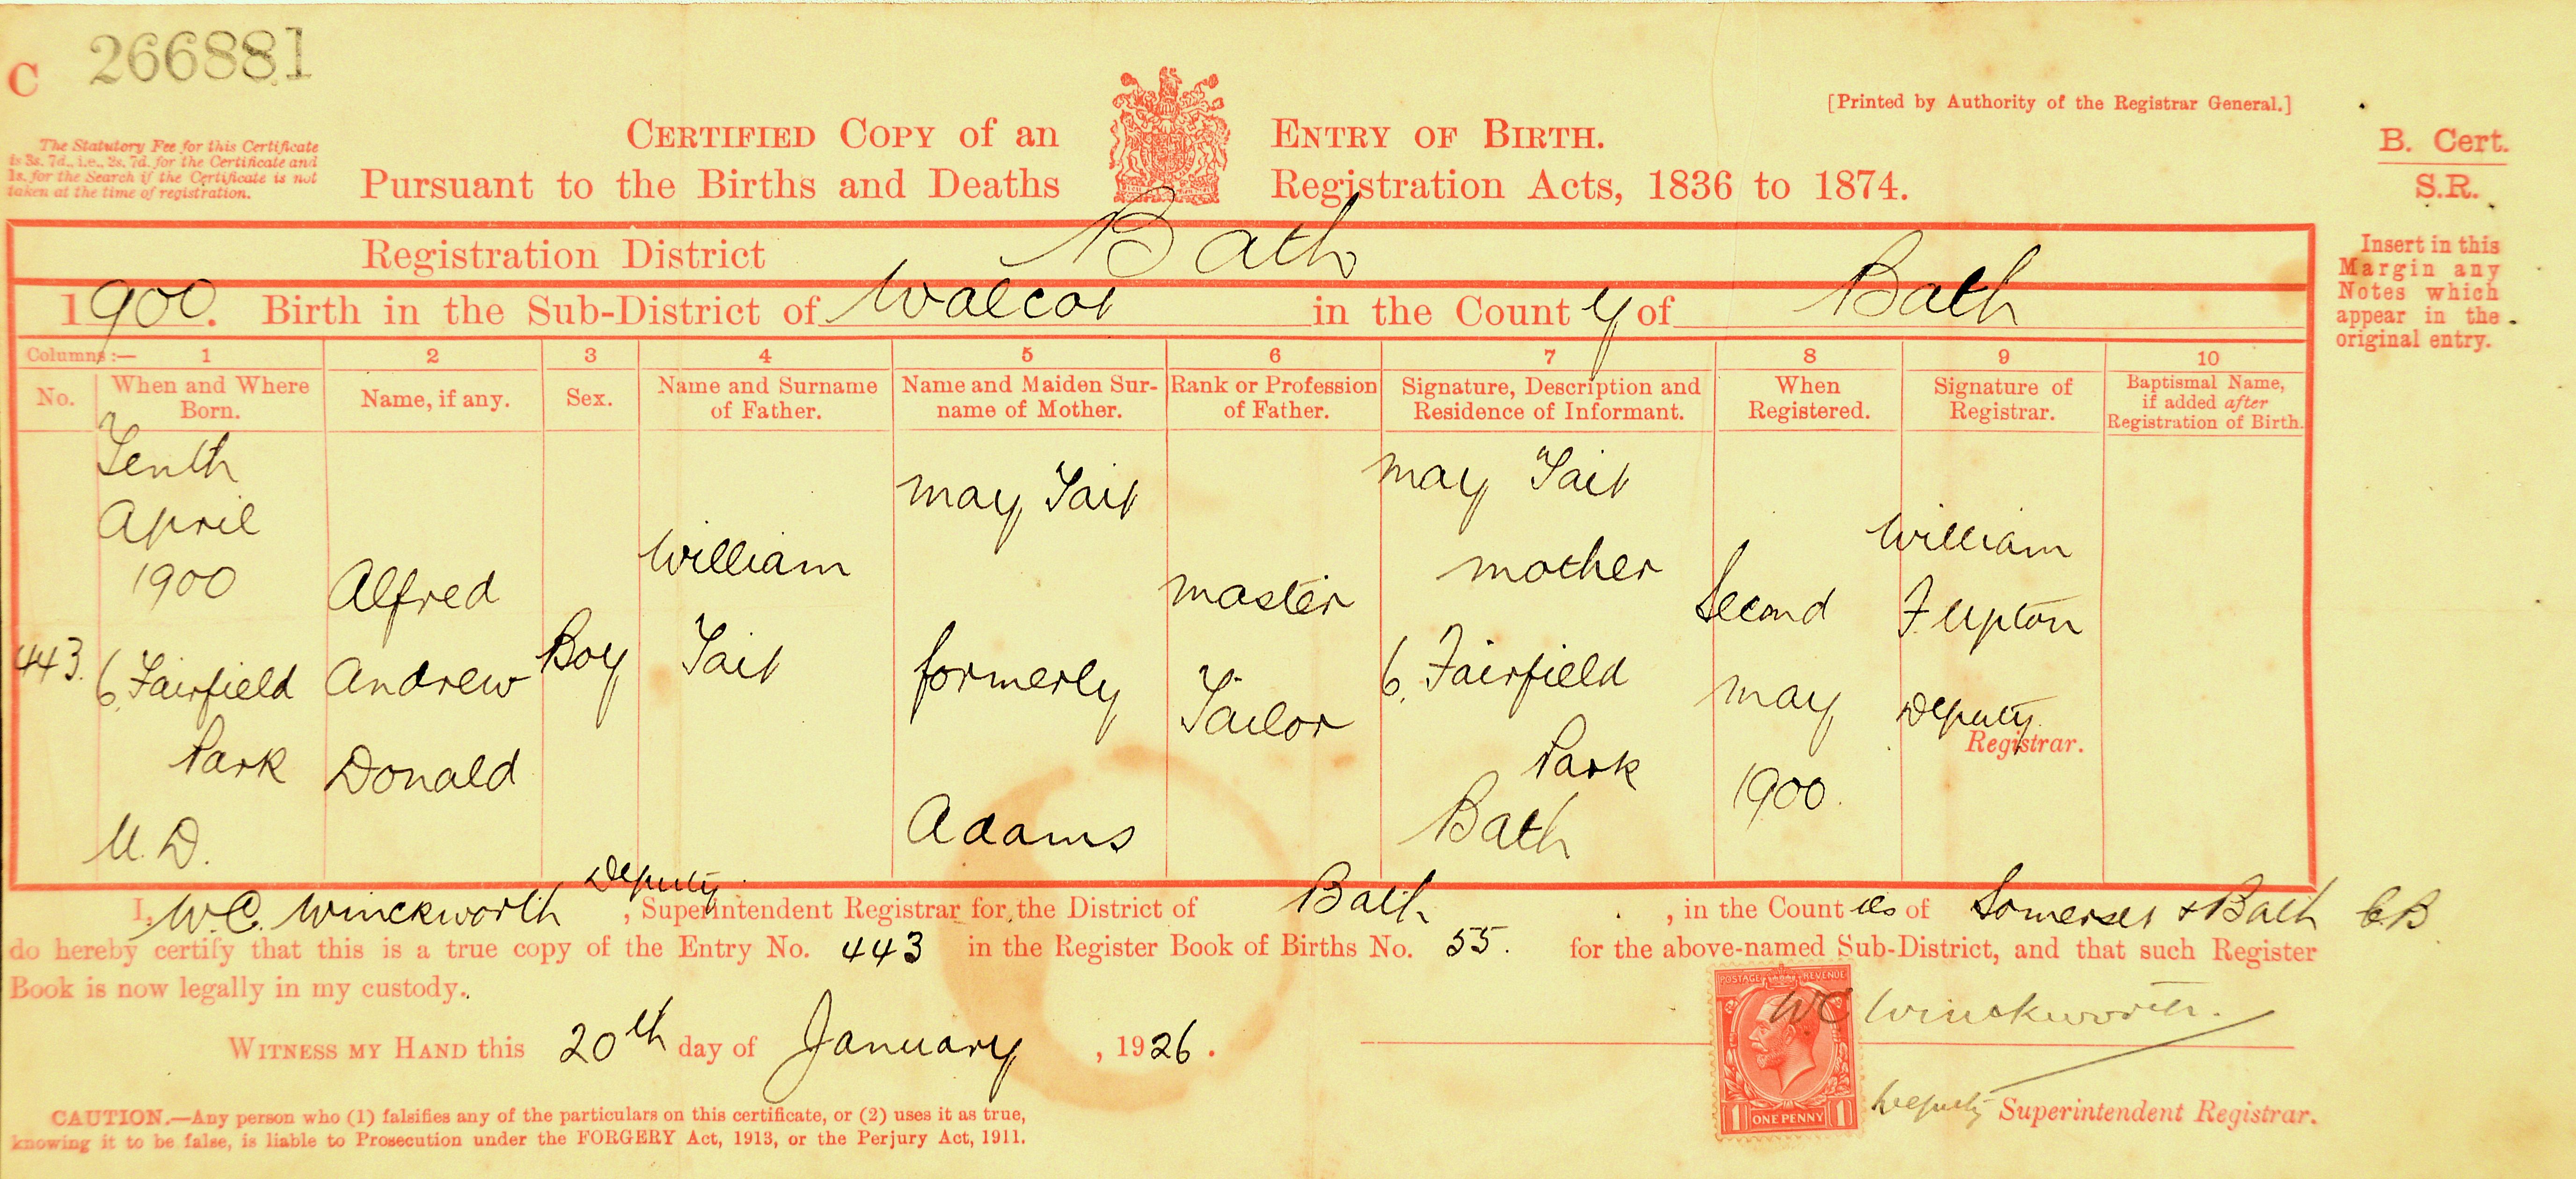 C 266881
[Printed by Authority of the Registrar General.]
The Statutory Fee for this Certificate
is 3s. 7d., i.e., 2s. 7d. for the Certificate and
1s. for the Search if the Certificate is not
taken at the time of registration.
CERTIFIED COPY of an ENTRY OF BIRTH.
Pursuant to the Births and Deaths Registration Acts, 1836 to 1874.
B. Cert.
S.R.
Insert in this
Margin any
Notes which
appear in the
original entry.
Registration District Bath
1900. Birth in the Sub-District of Walcot in the County of Bath
Columns:— 1 2 3 4 5 6 7 8 9 10
No.
When and Where
Born.
Name, if any.
Sex.
Name and Surname
of Father.
Name and Maiden Sur-
name of Mother.
Rank or Profession
of Father.
Signature, Description and
Residence of Informant.
When
Registered.
Signature of
Registrar.
Baptismal Name,
if added after
Registration of Birth.
443.
Tenth
April
1900
6. Fairfield
Park
U.D.
Alfred
Andrew
Donald
Boy
William
Tait
May Tait
formerly
Adams
Master
Tailor
May Tait
Mother
6. Fairfield
Park
Bath
Second
May
1900.
William
F. Upton
Deputy
Registrar.
Deputy
I, W.C. Winckworth, Superintendent Registrar for the District of Bath, in the Counties of Somerset & Bath C.B.
do hereby certify that this is a true copy of the Entry No. 443 in the Register Book of Births No. 55. for the above-named Sub-District, and that such Register
Book is now legally in my custody.
WITNESS MY HAND this 20th day of January, 1926.
POSTAGE REVENUE
1 ONE PENNY 1
WC Winckworth.
Deputy Superintendent Registrar.
CAUTION.—Any person who (1) falsifies any of the particulars on this certificate, or (2) uses it as true,
knowing it to be false, is liable to Prosecution under the FORGERY Act, 1913, or the Perjury Act, 1911.